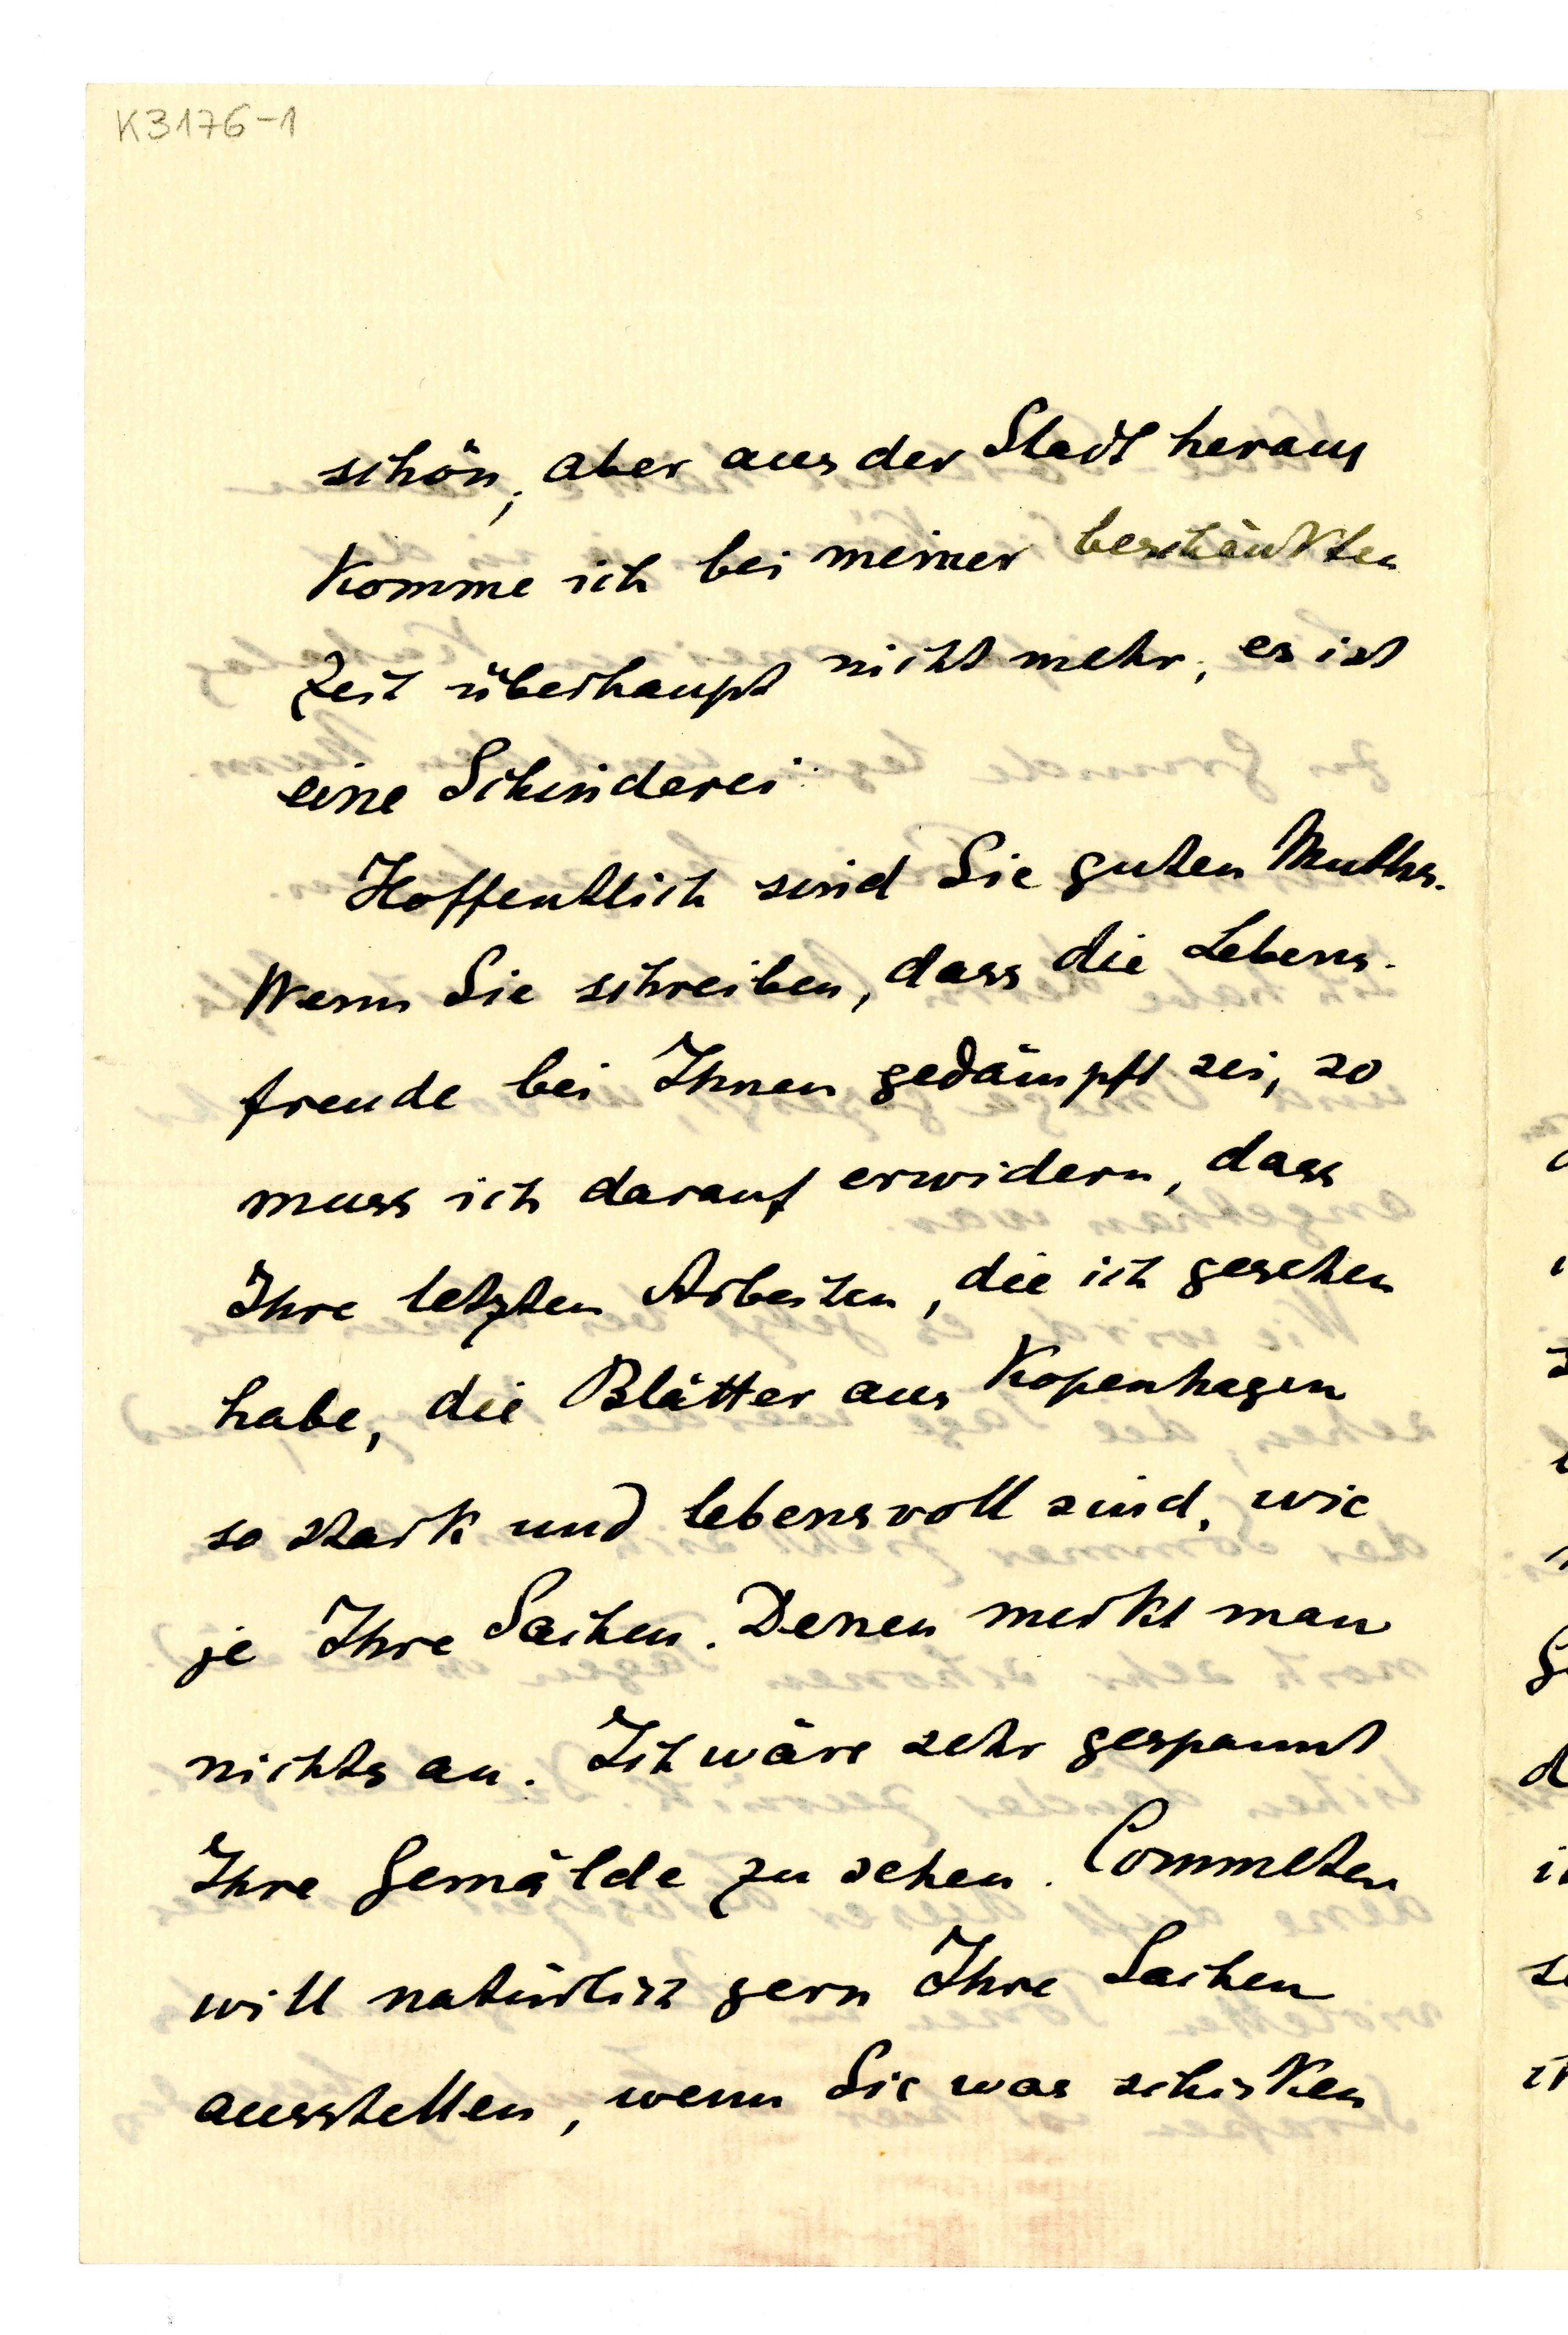 K3176-1
schön, aber aus der Stadt heraus
komme ich bei meiner beschänkten
Zeit überhaupt nicht mehr, es ist
eine Schinderei.
Hoffentlich sind Sie guten Muthes.
Wenn Sie schreiben, dass die Lebens-
freude bei Ihnen gedämpft sei, so
muss ich darauf erwidern, dass
Ihre letzten Arbeiten, die ich gesehen
habe, die Blätter aus Kopenhagen
so stark und lebensvoll sind, wie
je Ihre Sachen. Denen merkt man
nichts an. Ich wäre sehr gespannt
Ihre Gemälde zu sehen. Commeter
will natürlich gern Ihre Sachen
ausstellen, wenn Sie was schicken